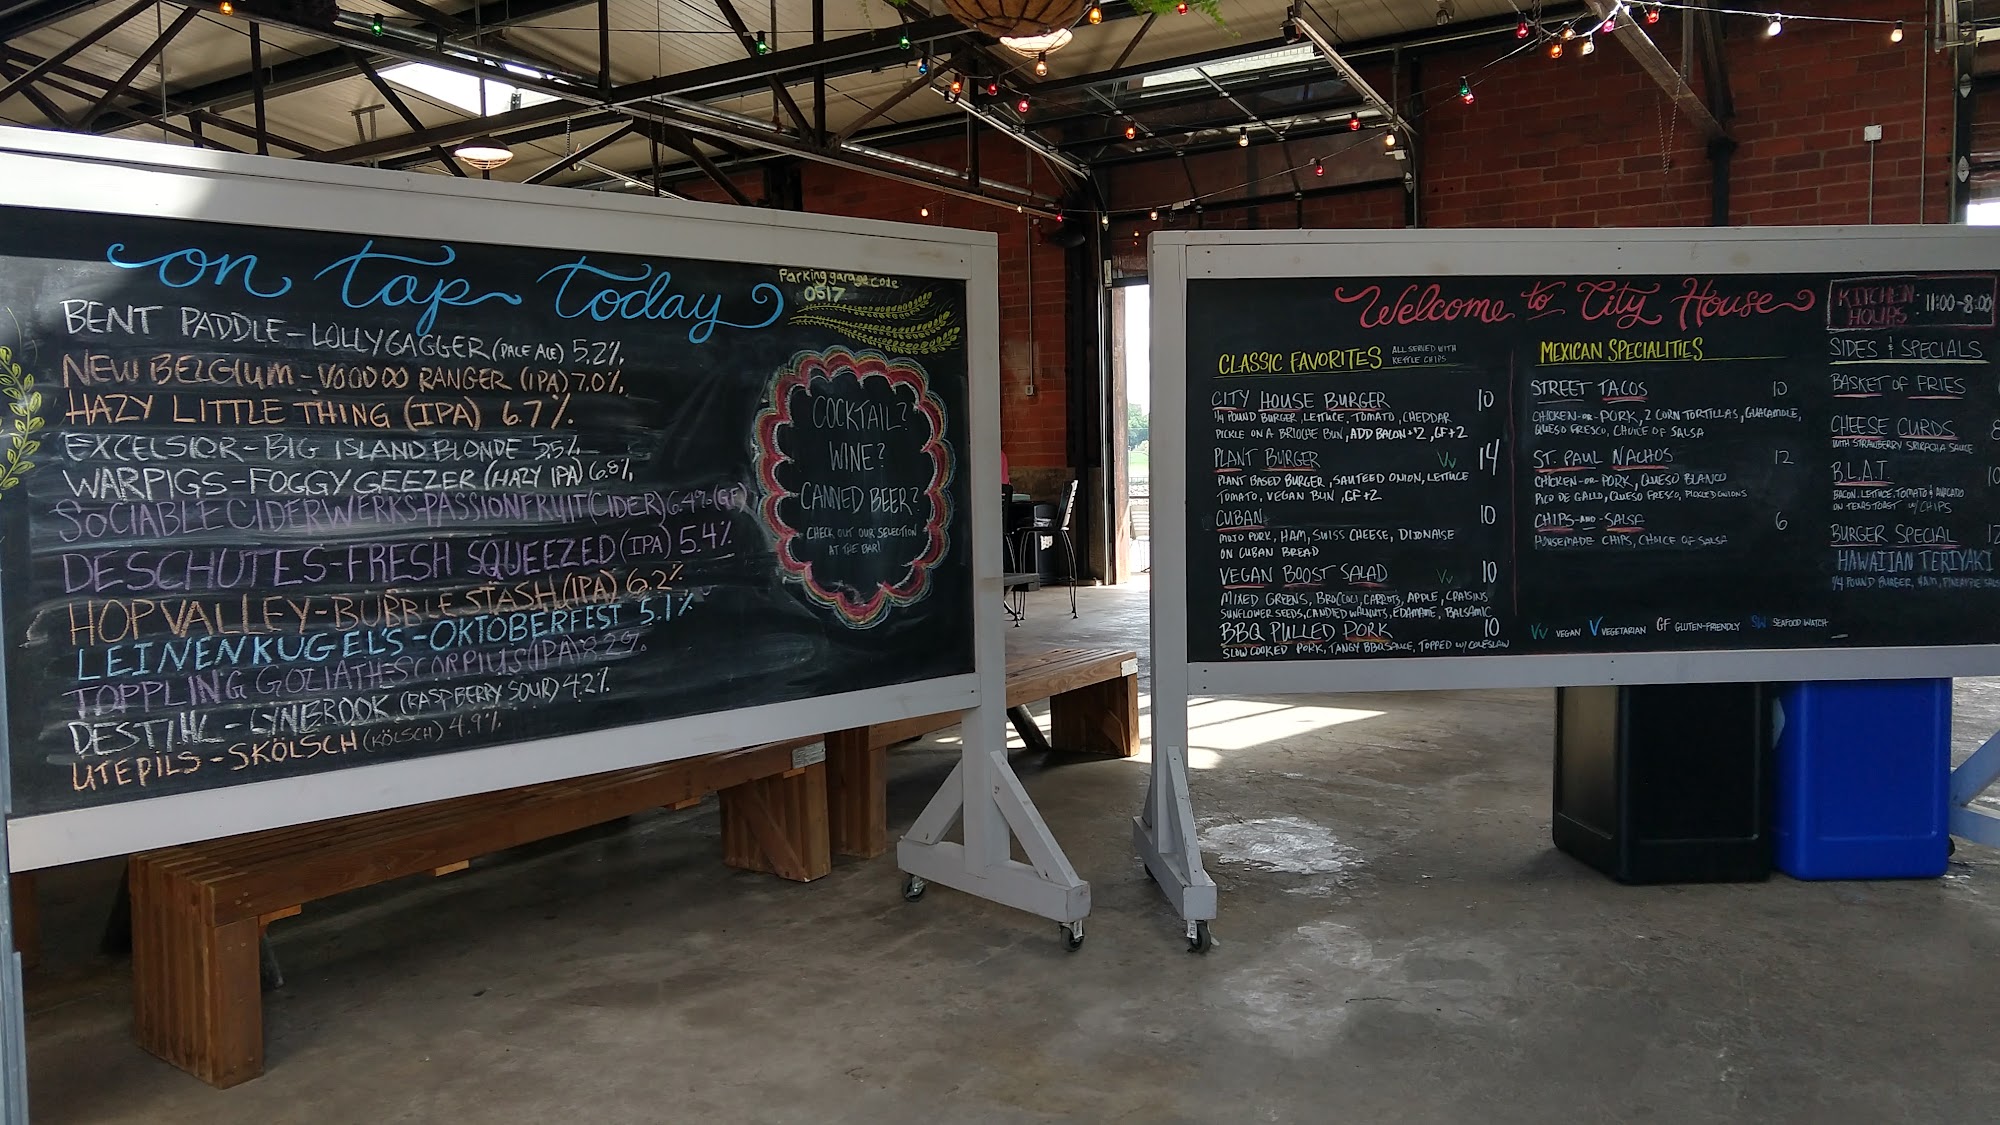 on tap today
Parking garage code
0517
BENT PADDLE-LOLLYGAGGER (PALE ALE) 5.2%
NEW BELGIUM-VOODOO RANGER (IPA) 7.0%
HAZY LITTLE THING (IPA) 6.7%
EXCELSIOR-BIG ISLAND BLONDE 5.5%
WARPIGS-FOGGY GEEZER (HAZY IPA) 6.8%
SOCIABLE CIDERWERKS-PASSIONFRUIT (CIDER) 6.4% (GF)
DESCHUTES-FRESH SQUEEZED (IPA) 5.4%
HOP VALLEY-BUBBLE STASH (IPA) 6.2%
LEINENKUGEL'S-OKTOBERFEST 5.1%
TOPPLING GOLIATH-SCORPIUS (IPA) 8.2%
DESTIHL-LYNBROOK (RASPBERRY SOUR) 4.2%
UTEPILS-SKÖLSCH (KÖLSCH) 4.9%
COCKTAIL?
WINE?
CANNED BEER?
CHECK OUT OUR SELECTION
AT THE BAR!
Welcome to City House
CLASSIC FAVORITES ALL SERVED WITH
KETTLE CHIPS
CITY HOUSE BURGER 10
1/4 POUND BURGER, LETTUCE, TOMATO, CHEDDAR
PICKLE ON A BRIOCHE BUN, ADD BACON +2, GF+2
PLANT BURGER VV 14
PLANT BASED BURGER, SAUTEED ONION, LETTUCE
TOMATO, VEGAN BUN, GF+2
CUBAN 10
MOJO PORK, HAM, SWISS CHEESE, DIJONAISE
ON CUBAN BREAD
VEGAN BOOST SALAD VV 10
MIXED GREENS, BROCCOLI, CARROTS, APPLE, CRAISINS
SUNFLOWER SEEDS, CANDIED WALNUTS, EDAMAME, BALSAMIC
BBQ PULLED PORK 10
SLOW COOKED PORK, TANGY BBQ SAUCE, TOPPED W/ COLESLAW
MEXICAN SPECIALITIES
STREET TACOS 10
CHICKEN-OR-PORK, 2 CORN TORTILLAS, GUACAMOLE,
QUESO FRESCO, CHOICE OF SALSA
ST. PAUL NACHOS 12
CHICKEN-OR-PORK, QUESO BLANCO
PICO DE GALLO, QUESO FRESCO, PICKLED ONIONS
CHIPS-AND-SALSA 6
HOUSEMADE CHIPS, CHOICE OF SALSA
VV VEGAN V VEGETARIAN GF GLUTEN-FRIENDLY SW SEAFOOD WATCH
KITCHEN HOURS: 11:00-8:00
SIDES & SPECIALS
BASKET OF FRIES
CHEESE CURDS 8
WITH STRAWBERRY SRIRACHA SAUCE
B.L.A.T.
BACON, LETTUCE, TOMATO & AVOCADO
ON TEXAS TOAST W/ CHIPS
BURGER SPECIAL 12
HAWAIIAN TERIYAKI
1/4 POUND BURGER, HAM, PINEAPPLE